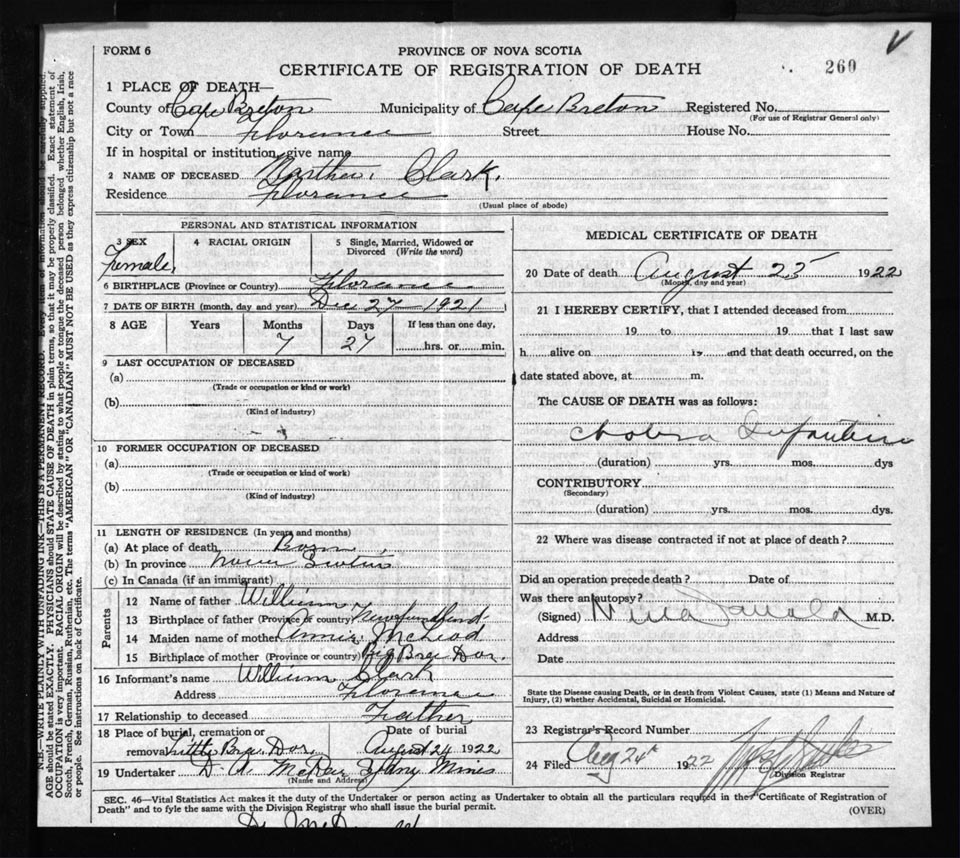 FORM 6
PROVINCE OF NOVA SCOTIA
CERTIFICATE OF REGISTRATION OF DEATH
260
1 PLACE OF DEATH—
County of Cape Breton Municipality of Cape Breton Registered No.
(For use of Registrar General only)
City or Town Florance Street House No.
If in hospital or institution, give name
2 NAME OF DECEASED Clark.
Residence Florance
(Usual place of abode)
PERSONAL AND STATISTICAL INFORMATION
3 SEX Female,
4 RACIAL ORIGIN
5 Single, Married, Widowed or
Divorced (Write the word)
6 BIRTHPLACE (Province or Country) Florance
7 DATE OF BIRTH (month, day and year) Dec 27 1921
8 AGE Years Months Days If less than one day,
7 27 hrs. or min.
9 LAST OCCUPATION OF DECEASED
(a)
(Trade or occupation or kind or work)
(b)
(Kind of industry)
10 FORMER OCCUPATION OF DECEASED
(a)
(Trade or occupation or kind of work)
(b)
(Kind of industry)
11 LENGTH OF RESIDENCE (In years and months)
(a) At place of death Born
(b) In province Nova Scotia
(c) In Canada (if an immigrant)
Parents
12 Name of father William
13 Birthplace of father (Province or country) Newfoundland
14 Maiden name of mother Annie McLeod
15 Birthplace of mother (Province or country) Big Bras Dor.
16 Informant's name William Clark
Address Florance
17 Relationship to deceased Father
18 Place of burial, cremation or Date of burial
removal Little Bras Dor. August 24 1922
19 Undertaker D. A. McRae Sydney Mines
(Name and Address)
MEDICAL CERTIFICATE OF DEATH
20 Date of death August 25 1922
(Month, day and year)
21 I HEREBY CERTIFY, that I attended deceased from
19 to 19 that I last saw
h alive on 19 and that death occurred, on the
date stated above, at m.
The CAUSE OF DEATH was as follows:
Cholera Infantum
(duration) yrs. mos. dys
CONTRIBUTORY
(Secondary)
(duration) yrs. mos. dys.
22 Where was disease contracted if not at place of death?
Did an operation precede death? Date of
Was there an autopsy?
(Signed) M.D.
Address
Date
State the Disease causing Death, or in death from Violent Causes, state (1) Means and Nature of
Injury, (2) whether Accidental, Suicidal or Homicidal.
23 Registrar's Record Number
24 Filed Aug 24th 1922
Division Registrar
SEC. 46—Vital Statistics Act makes it the duty of the Undertaker or person acting as Undertaker to obtain all the particulars required in the "Certificate of Registration of
Death" and to fyle the same with the Division Registrar who shall issue the burial permit.
(OVER)
N.B.—WRITE PLAINLY WITH UNFADING INK—THIS IS A PERMANENT RECORD. Every item of information should be carefully supplied.
AGE should be stated EXACTLY. PHYSICIANS should STATE CAUSE OF DEATH in plain terms, so that it may be properly classified. Exact statement of
OCCUPATION is very important. RACIAL ORIGIN will be described by stating to what people or tongue the deceased person belonged whether English, Irish,
Scotch, French, German, Russian, Ruthenian, etc. The terms "AMERICAN" OR "CANADIAN" MUST NOT BE USED as they express citizenship but not a race
or people. See instructions on back of Certificate.